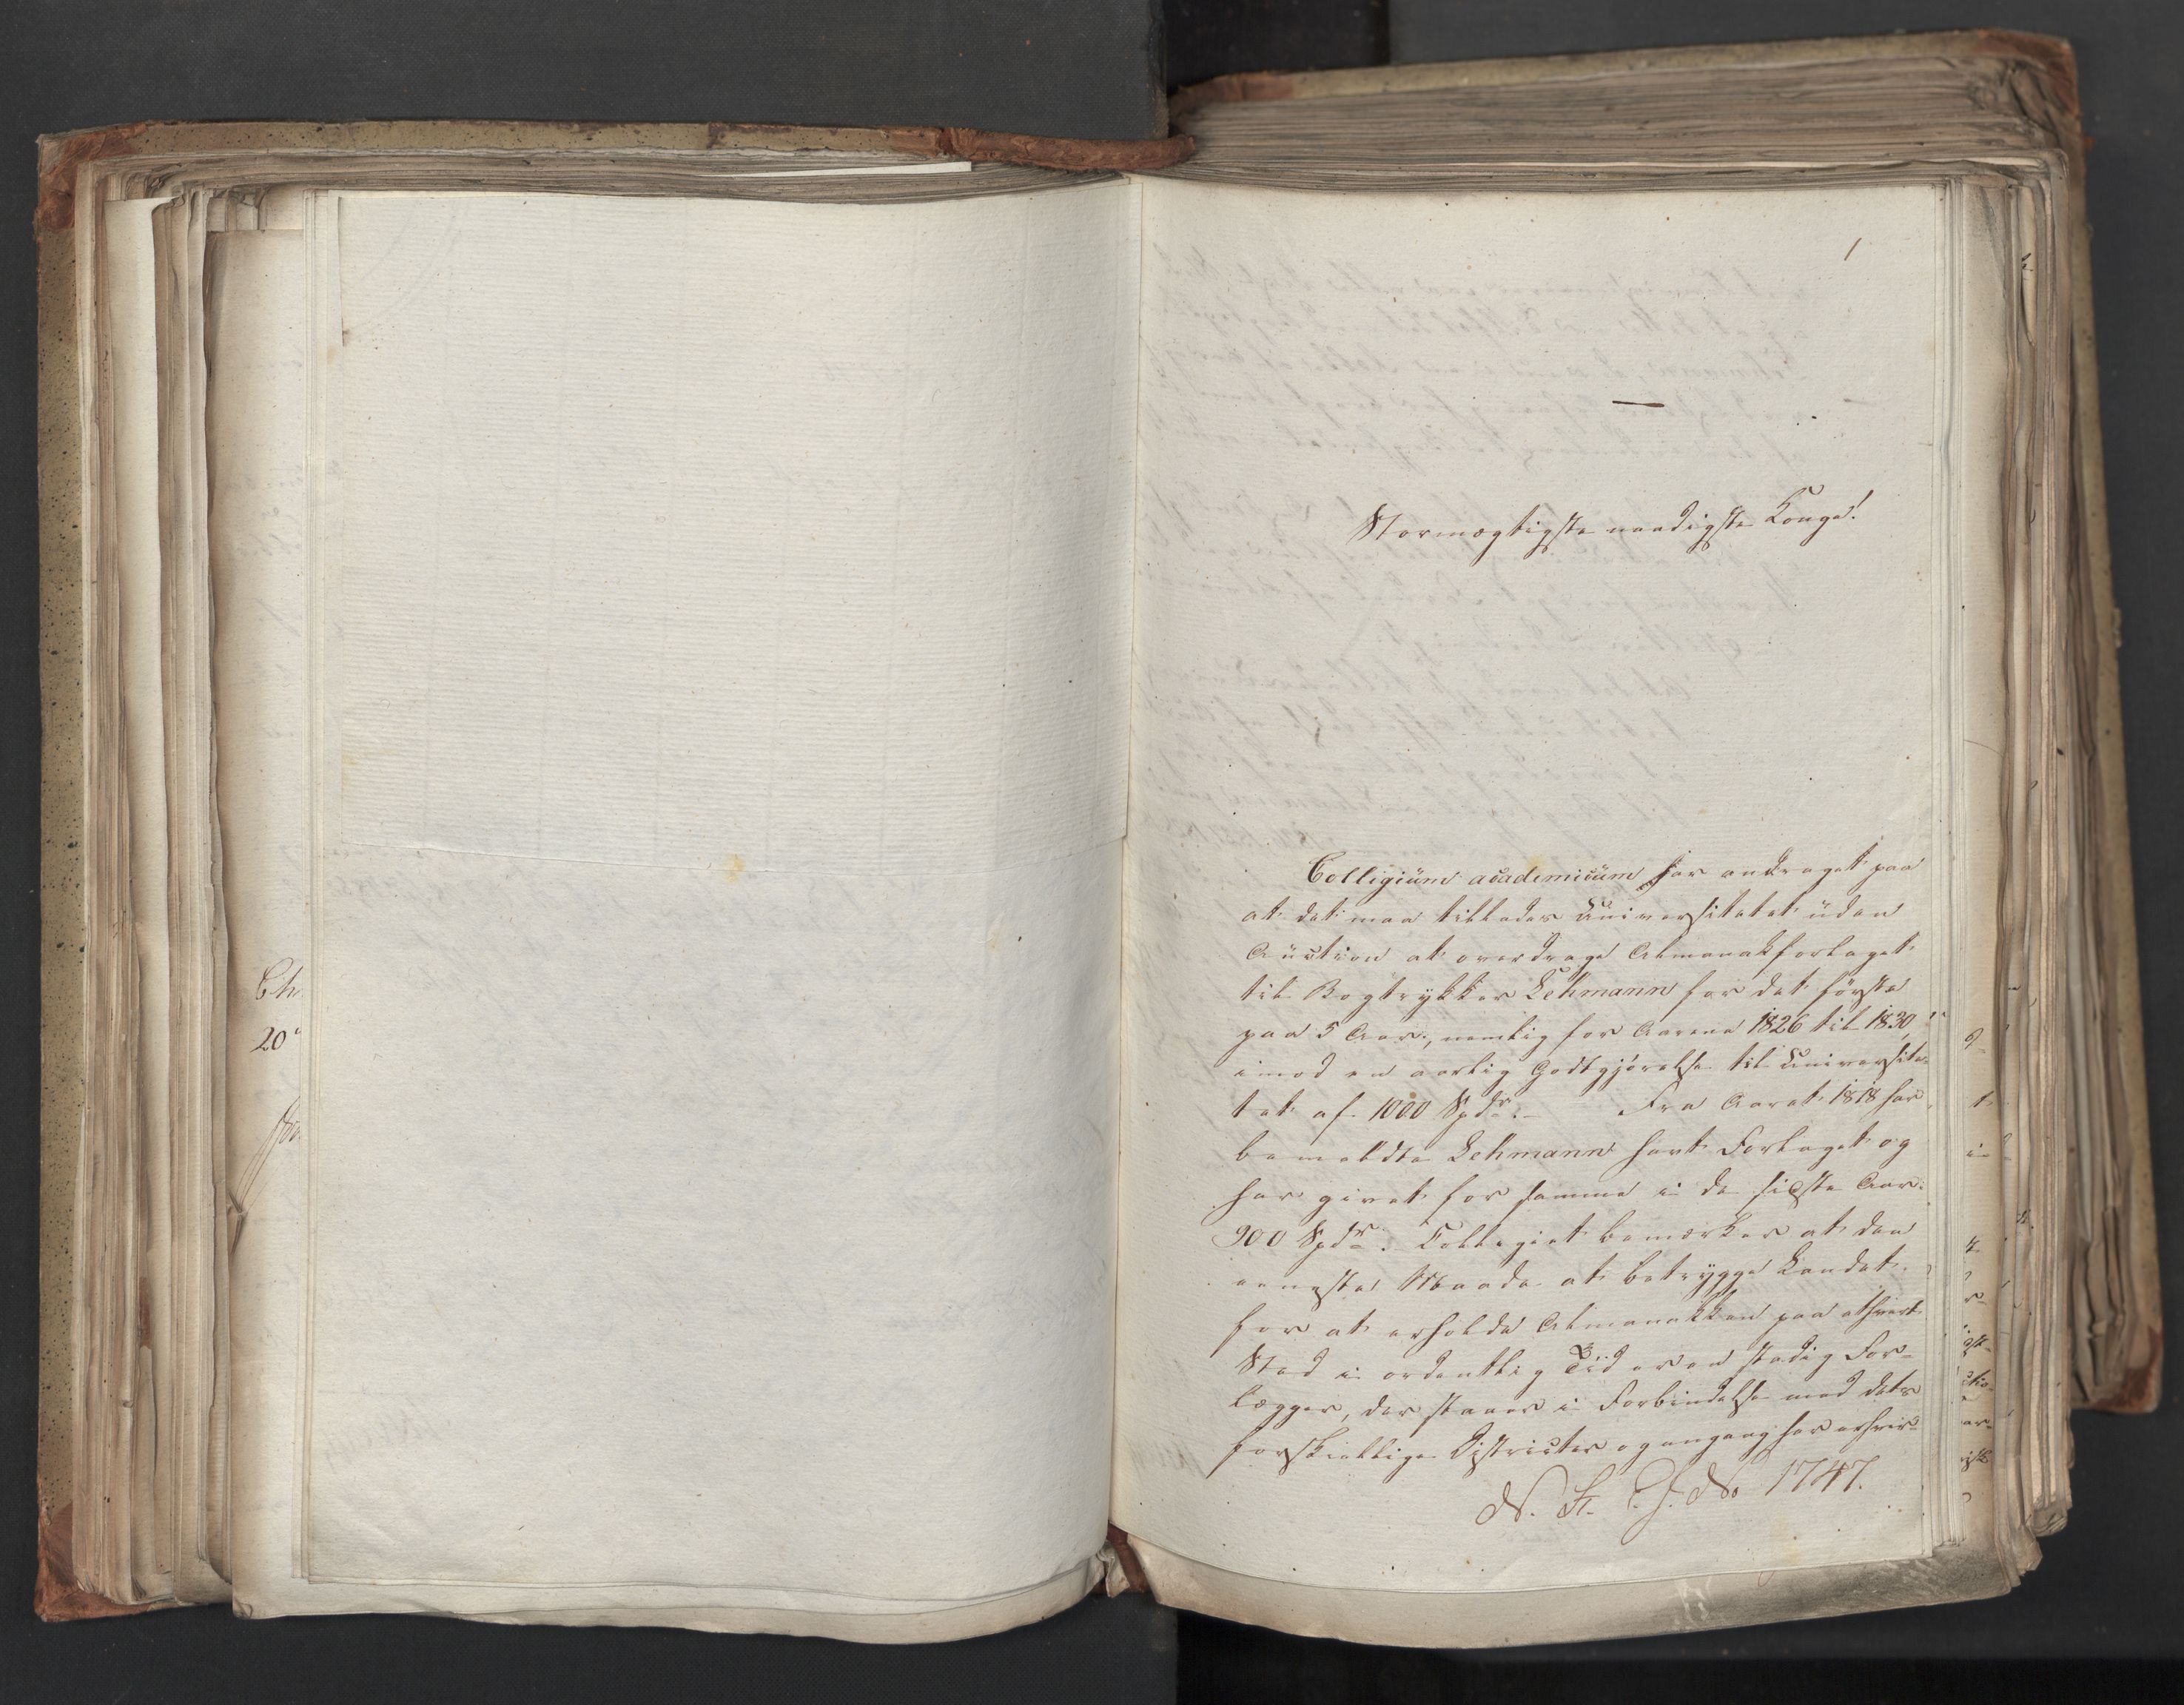 1
Stormægtigste naadigste Konge!
Collegium academicum har andraget paa
at det maa tillades Universitetet uden
Auction at overdrage Almanakforlaget
til Bogtrykker Lehmann for det første
paa 5 Aar, nemlig for Aarene 1826 til 1830,
imod en aarlig Godtgjørelse til Universite-
tet af 1000 Spdr. – Fra Aaret 1818 har
bemeldte Lehmann havt Forlaget og
har givet for samme i de sidste Aar
900 Spdr. Collegiet bemærker at den
eeneste Maade at betrygge Landet
for at erholde Almanakken paa ethvert
Sted i ordentlig Tid er en stadig For-
lægger, der staaer i Forbindelse med dets
forskiellige Districter og engang har erhver-
No 1747.
Ch
20